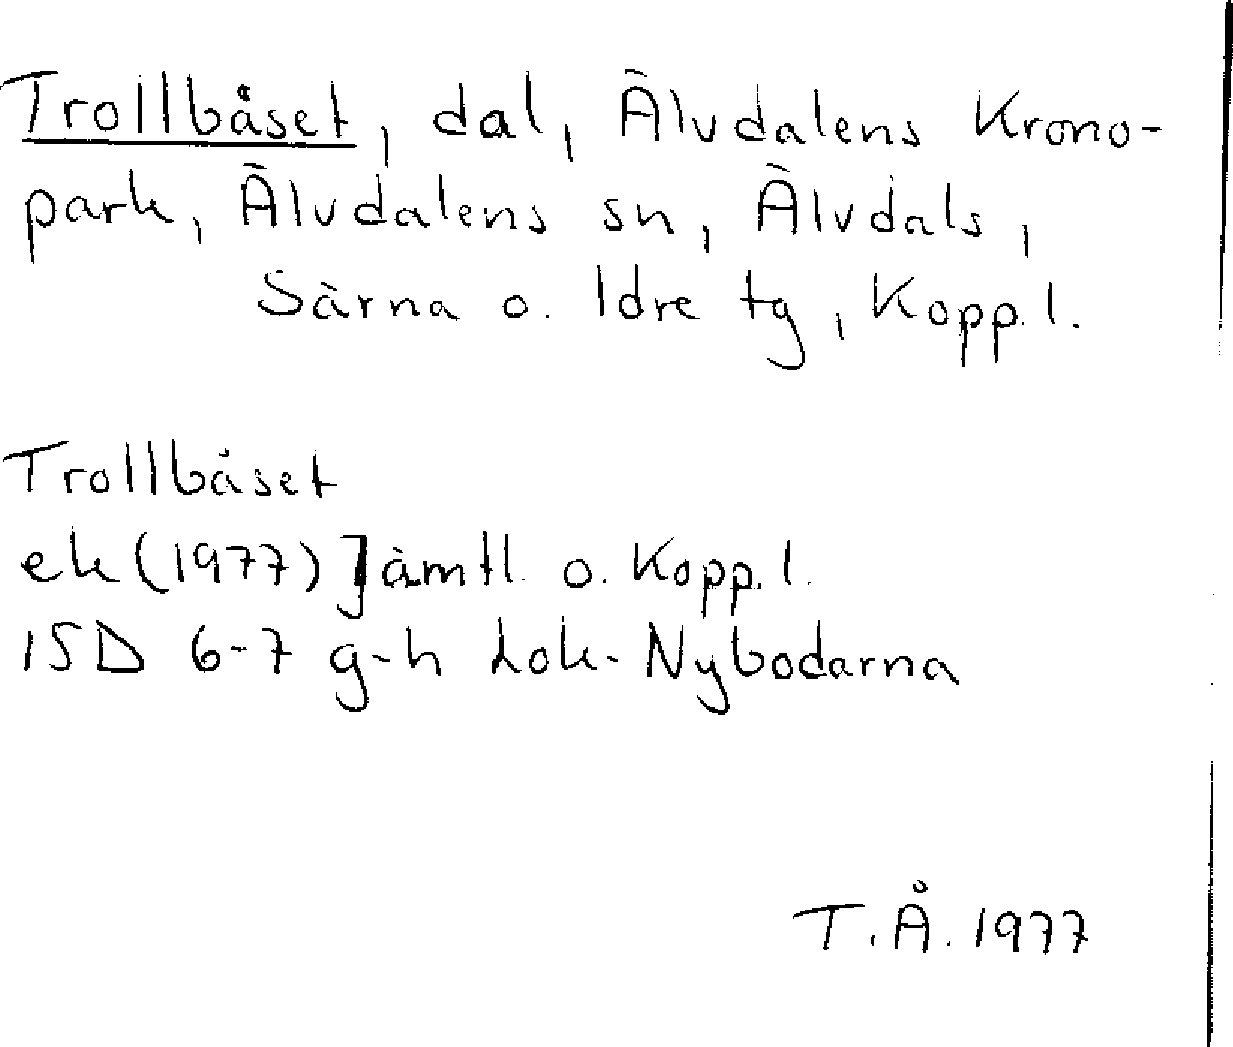 Trollbåset, dal, Älvdalens Krono-
park, Älvdalens sn, Älvdals,
Särna o. Idre tg, Kopp. l.
Trollbåset
ek (1977) Jämtl. o. Kopp. l.
15D 6-7 g-h Lok-Nybodarna
T.Å. 1977